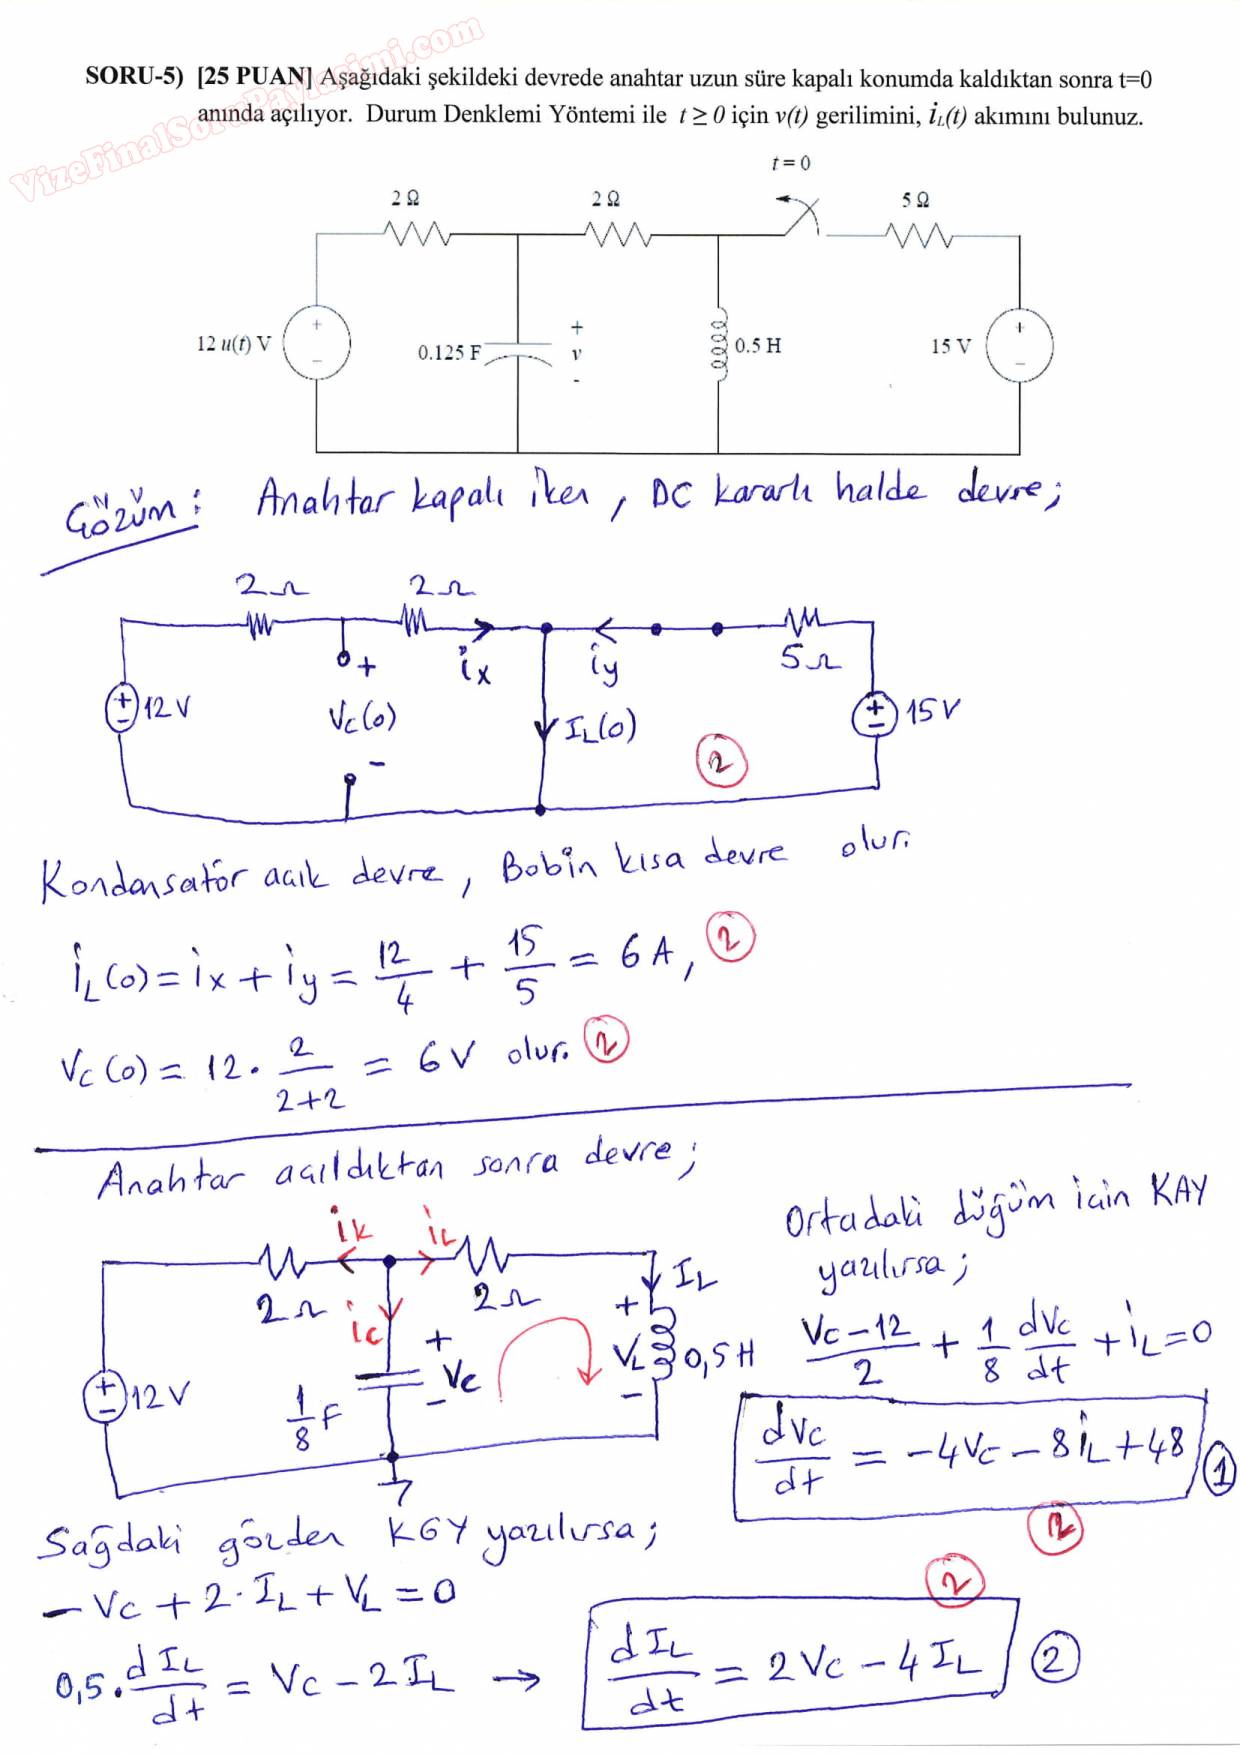 VizeFinalSoruPaylasimi.com
SORU-5) [25 PUAN] Aşağıdaki şekildeki devrede anahtar uzun süre kapalı konumda kaldıktan sonra t=0
anında açılıyor. Durum Denklemi Yöntemi ile t ≥ 0 için v(t) gerilimini, i_L(t) akımını bulunuz.
t = 0
2 Ω 2 Ω 5 Ω
12 u(t) V + − 0.125 F + v - 0.5 H 15 V + −
Gözüm: Anahtar kapalı iken, DC kararlı halde devre;
2Ω 2Ω
ix iy 5Ω
+ − 12V + Vc(0) − IL(0) + − 15V
2
Kondansatör açık devre, Bobin kısa devre olur.
iL(0) = ix + iy = 12/4 + 15/5 = 6A, 2
Vc(0) = 12 · 2/(2+2) = 6V olur. 2
Anahtar açıldıktan sonra devre;
ik iL
2Ω 2Ω IL
ic
+ − 12V 1/8 F + Vc − + VL − 0,5H
Ortadaki düğüm için KAY
yazılırsa;
(Vc-12)/2 + 1/8 dVc/dt + iL = 0
dVc/dt = -4Vc - 8iL + 48 1
2
Sağdaki gözden KGY yazılırsa;
-Vc + 2·IL + VL = 0
2
0,5·dIL/dt = Vc - 2IL → dIL/dt = 2Vc - 4IL 2